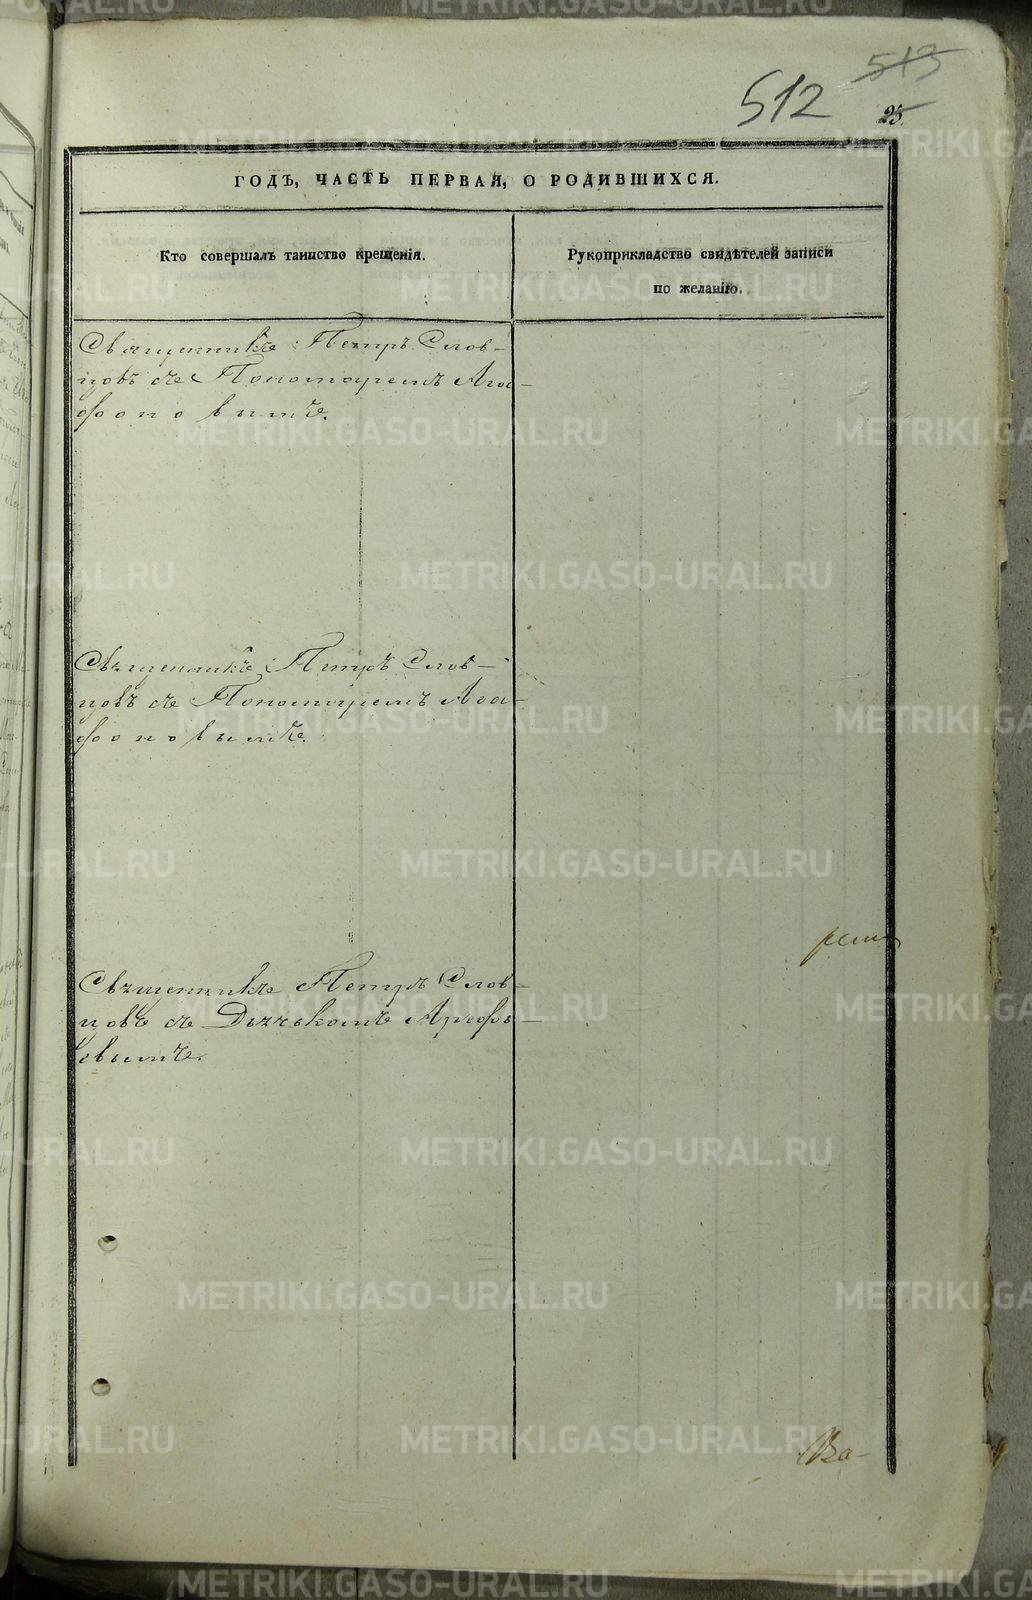 513
512
25
ГОДЪ, ЧАСТЬ ПЕРВАЯ, О РОДИВШИХСЯ.
Кто совершалъ таинство крещенія.
Рукоприкладство свидѣтелей записи
по желанію.
Священникъ Петръ Слов-
цовъ съ Пономаремъ Ага-
фоновымъ.
Священникъ Петръ Слов-
цовъ съ Пономаремъ Ага-
фоновымъ.
Священникъ Петръ Слов-
цовъ съ Дьячькомъ Арефь-
евымъ.
Ва-
METRIKI.GASO-URAL.RU